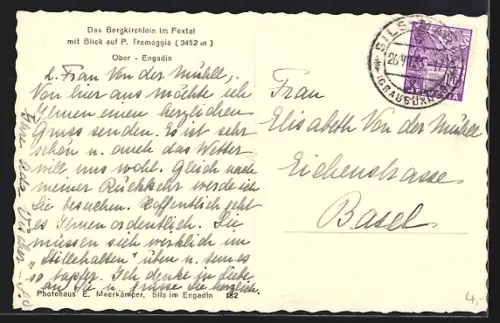 Das Bergkirchlein im Fextal
mit Blick auf P. Tremoggia (3452 m)
Ober-Engadin
L. Frau Von der Mühll,
Von hier aus möchte ich
Ihnen einen herzlichen
Gruss senden. Es ist sehr
schön u. auch das Wetter
will uns wohl. Gleich nach
meiner Rückkehr werde ich
Sie besuchen. Hoffentlich geht
es Ihnen ordentlich. Sie
müssen sich wirklich im
"Stillehalten" üben u. tun es
so tapfer. Ich denke in Liebe
an Sie u. grüsse Sie herzlich.
Photohaus E. Meerkämper, Sils im Engadin 182
Frau
Elisabeth Von der Mühll
Eichenstrasse
Basel.
SILS
(GRAUBÜNDEN)
HELVETIA
4,-